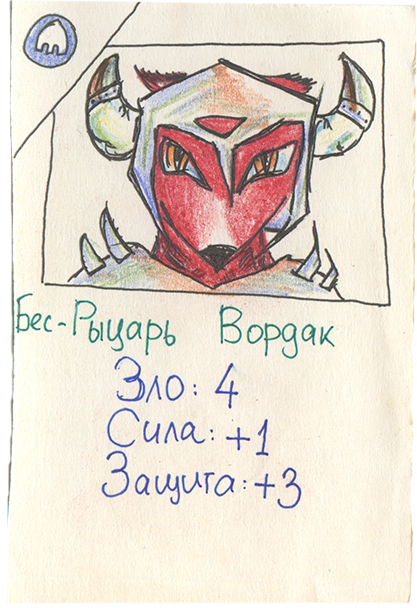 Бес-Рыцарь Вордак
Зло: 4
Сила: +1
Защита: +3